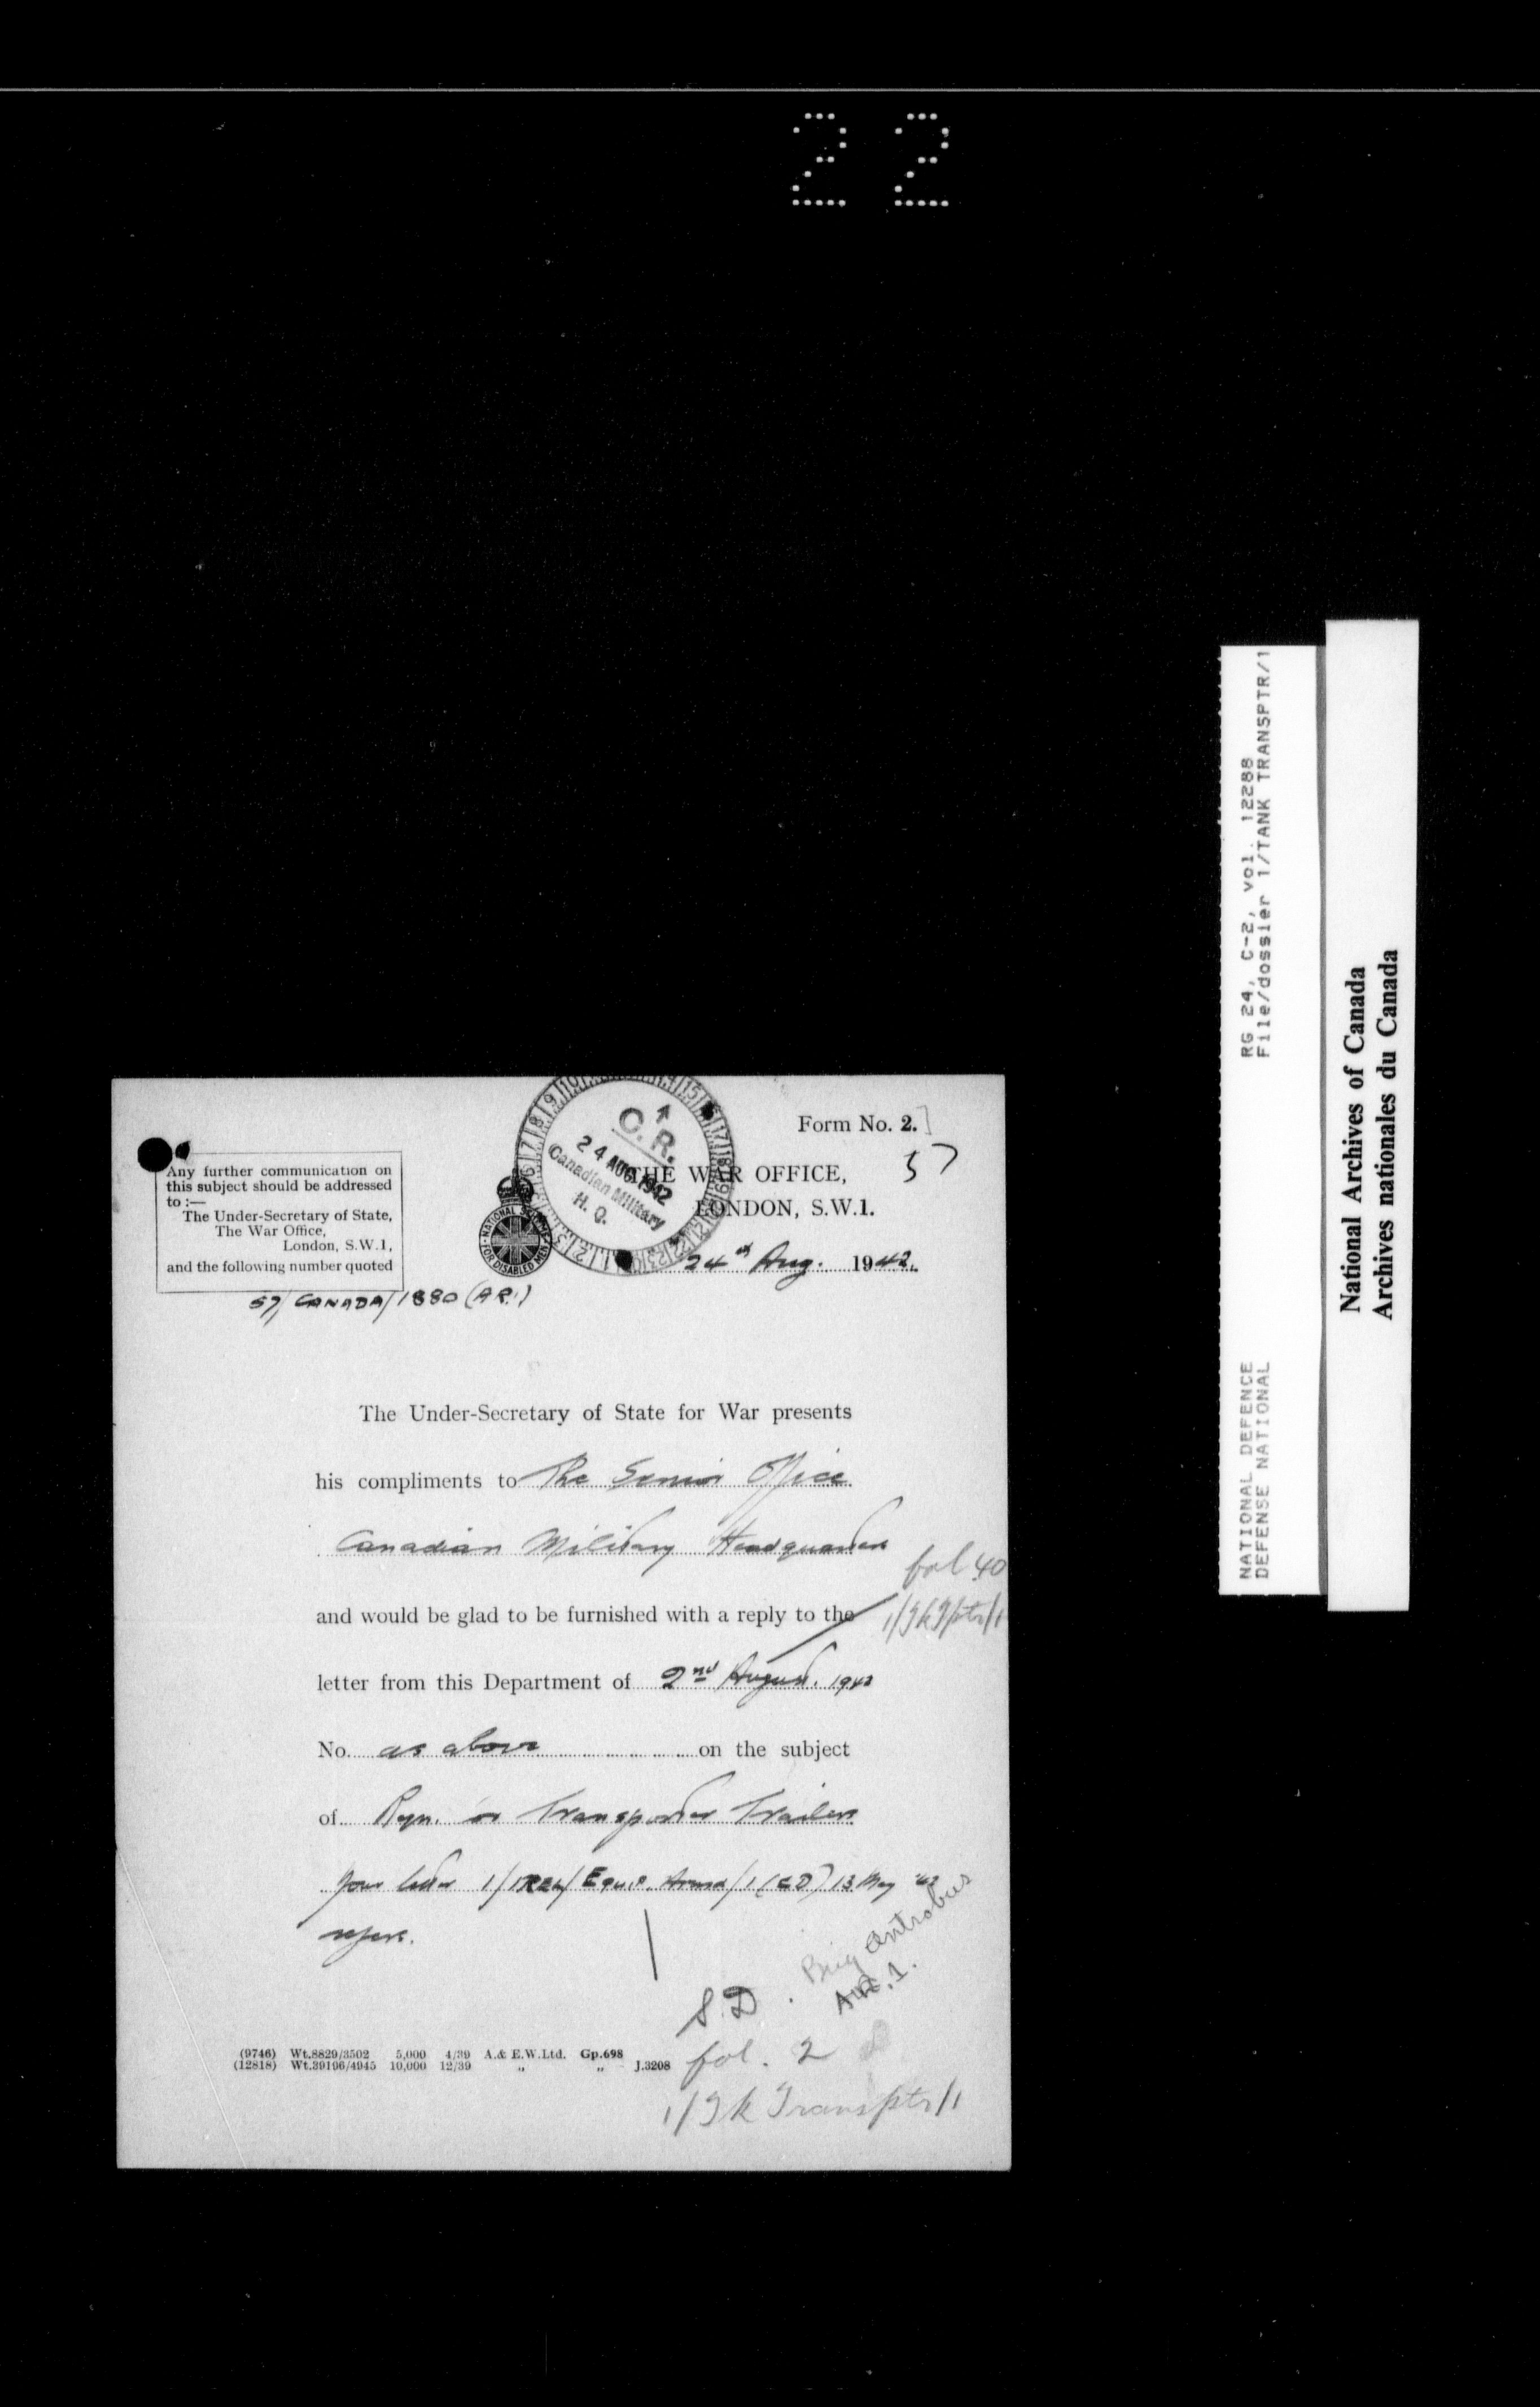 22
Form No. 2.
57
O. R.
24 AUG 1942
Canadian Military
H. Q.
THE WAR OFFICE,
LONDON, S.W.1.
24th Aug. 1942.
Any further communication on
this subject should be addressed
to :—
The Under-Secretary of State,
The War Office,
London, S.W.1,
and the following number quoted
57/CANADA/1880 (A.R.1)
NATIONAL SCHEME
FOR DISABLED MEN
The Under-Secretary of State for War presents
his compliments to The Senior Officer
Canadian Military Headquarters
fol 40
and would be glad to be furnished with a reply to the
1/Tk Tptr/1
letter from this Department of 2nd August. 1942
No. as above on the subject
of Transporter Trailers
Your letter Equip. 13 May '42
refers.
Brig Antrobus
S.D.
fol. 2
1/Tk Transptr/1
(9746) Wt.8829/3502 5,000 4/39 A.& E.W.Ltd. Gp.698
(12818) Wt.39196/4945 10,000 12/39 „ „ J.3208
RG 24, C-2, vol. 12288
File/dossier 1/TANK TRANSPTR/1
NATIONAL DEFENCE
DEFENSE NATIONAL
National Archives of Canada
Archives nationales du Canada